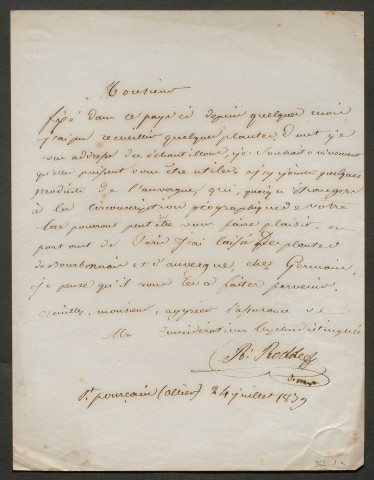 Monsieur
fixé dans ce pays ci depuis quelques mois
j'ai pu recueillir quelques plantes dont je
vous addresse des échantillons, je souhaite vivement
qu'elles puissent vous être utiles. j'y ajoute quelques
produits de l'auvergne, qui, quoiqu'étrangers
à la circonscription géographique de votre
flore pourront peut être vous faire plaisir. en
partant de Paris j'ai laissé des plantes
de Bourbonnais et d'auvergne, chez Germain,
je pense qu'il vous les a faites parvenir.
veuillez, monsieur, agréer l'assurance de
Ma considération la plus distinguée
St pourçain (allier) 24 juillet 1839